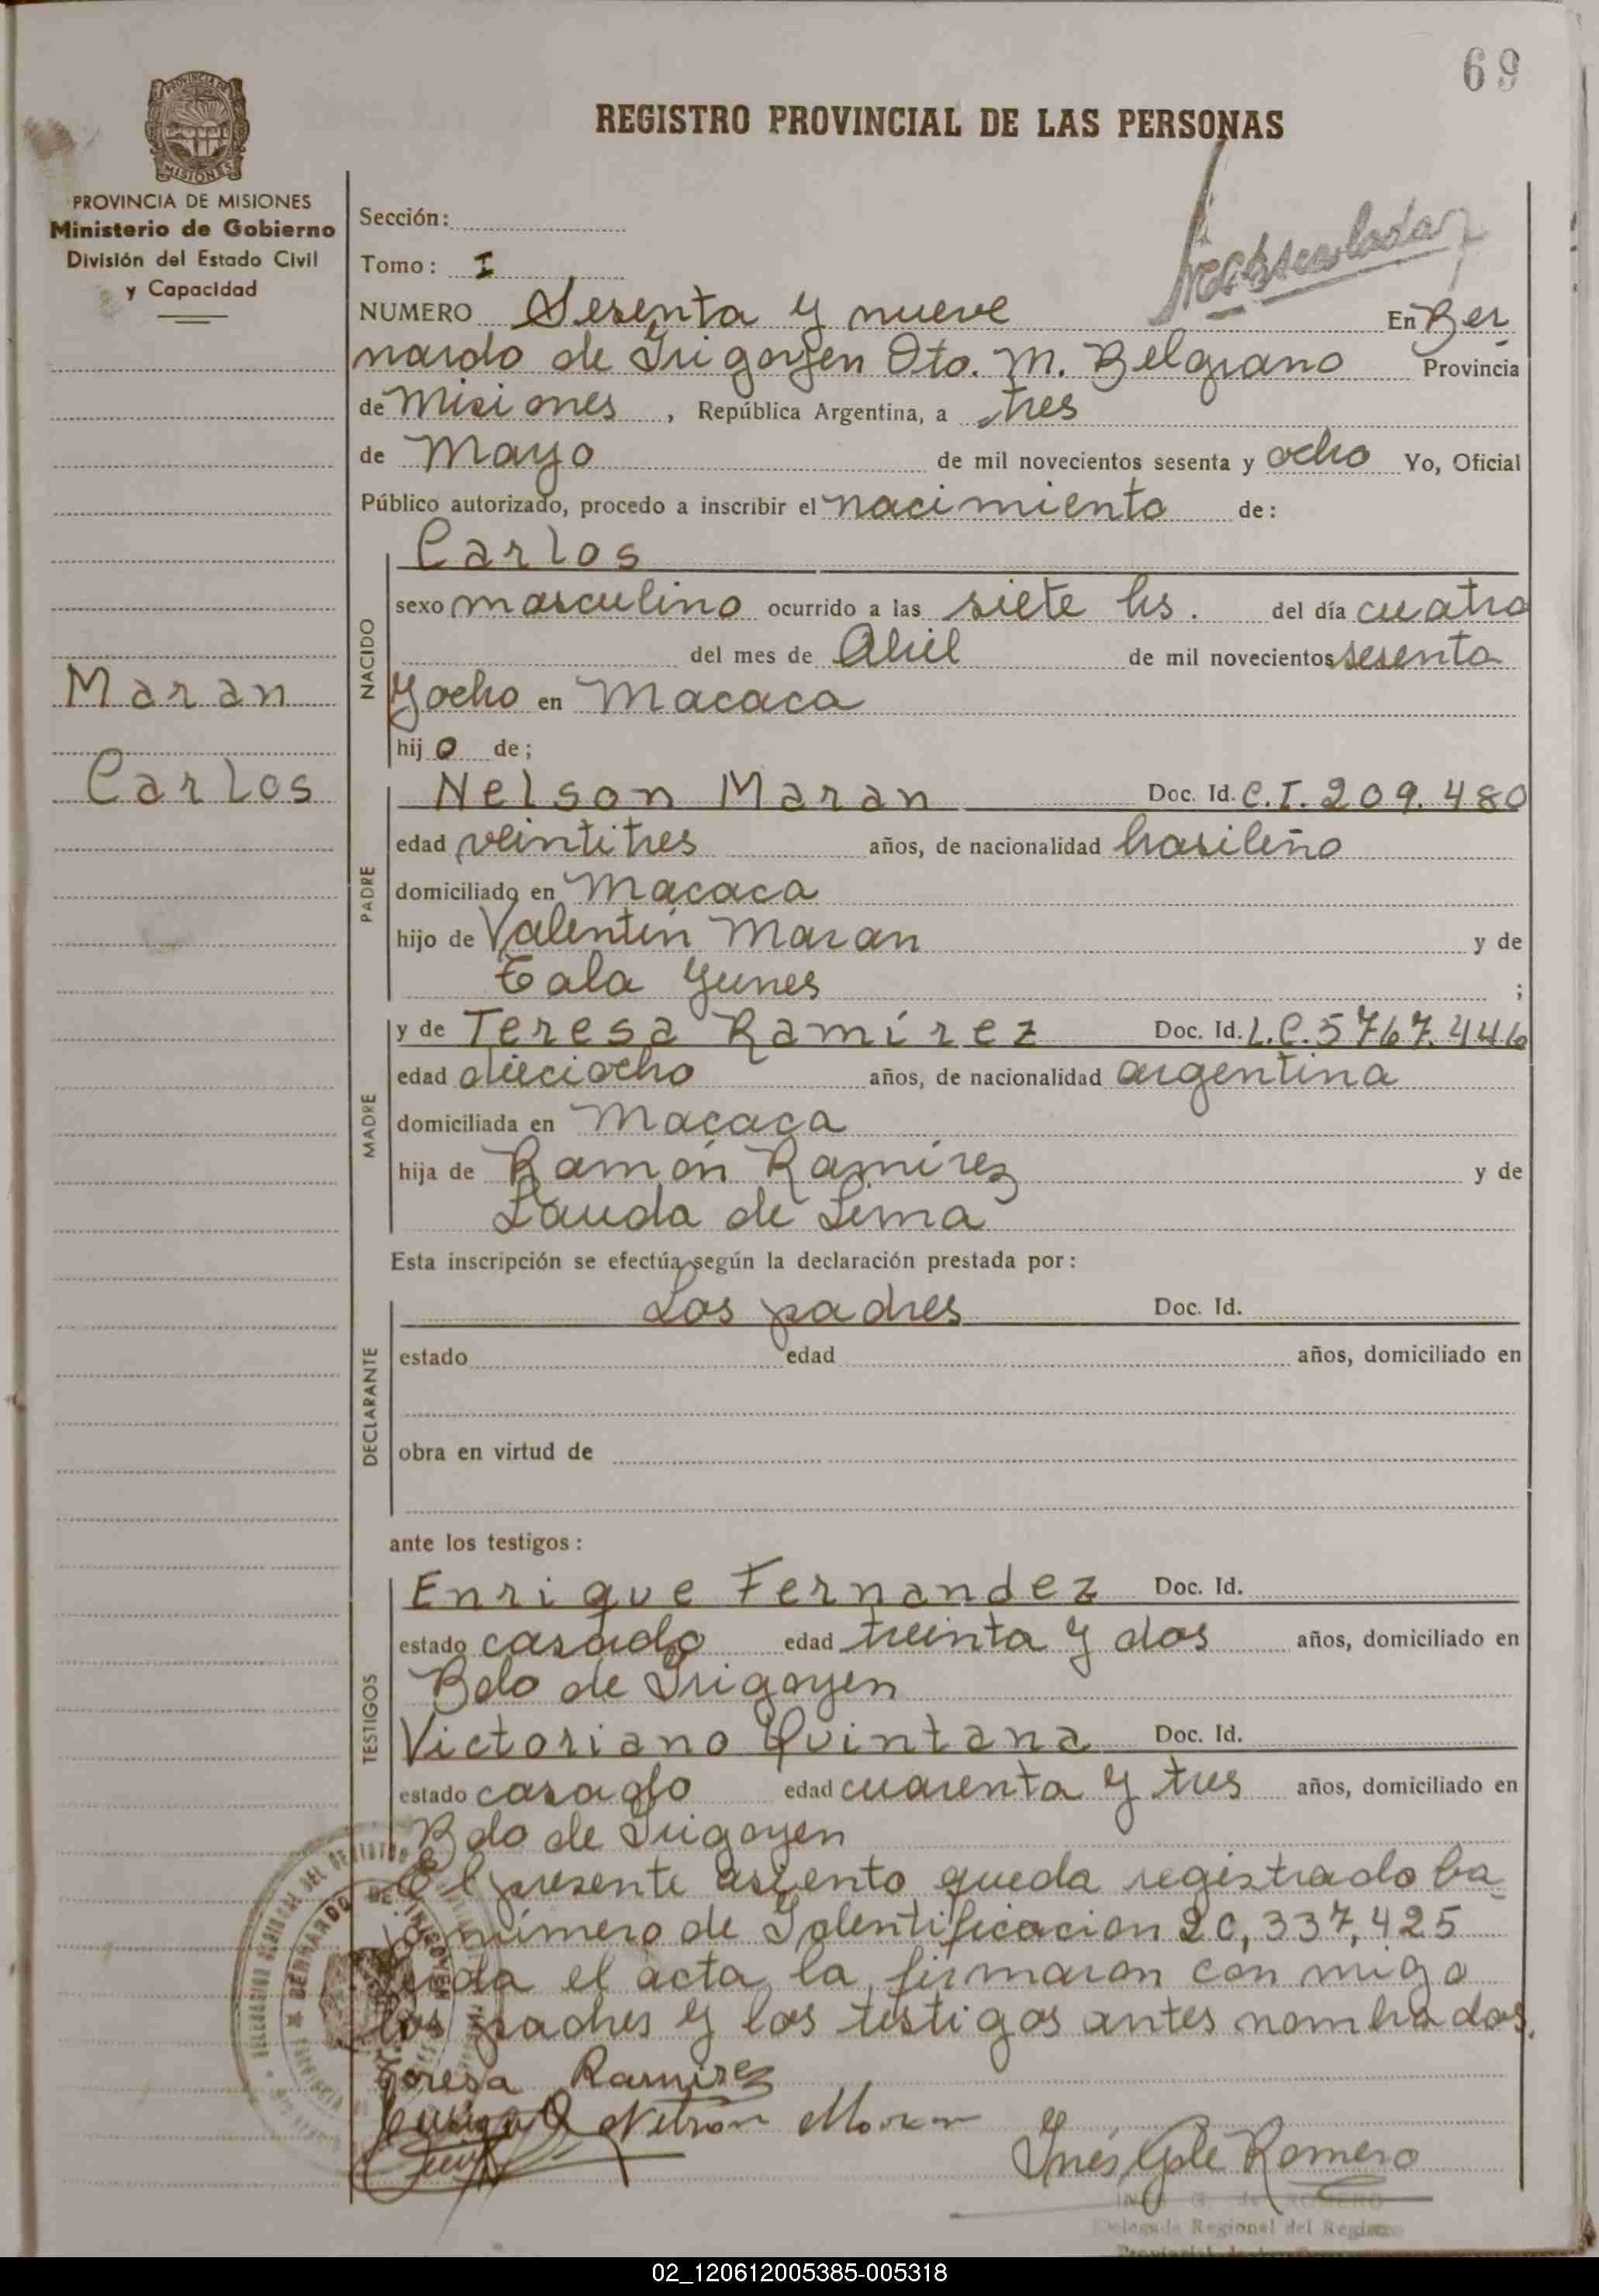 69
REGISTRO PROVINCIAL DE LAS PERSONAS
PROVINCIA DE MISIONES
Ministerio de Gobierno
División del Estado Civil
y Capacidad
Maran
Carlos
Sección:
Tomo: I
NUMERO Sesenta y nueve En Ber
nardo de Irigoyen Dto. M. Belgrano Provincia
de Misiones, República Argentina, a tres
de Mayo de mil novecientos sesenta y ocho Yo, Oficial
Público autorizado, procedo a inscribir el nacimiento de:
NACIDO
Carlos
sexo masculino ocurrido a las siete hs. del día cuatro
del mes de Abril de mil novecientos sesenta
y ocho en Macaca
hijo de;
PADRE
Nelson Maran Doc. Id. C.I. 209.480
edad veintitres años, de nacionalidad brasileño
domiciliado en Macaca
hijo de Valentín Maran y de
Tala Yunes ;
MADRE
y de Teresa Ramírez Doc. Id. L.C. 5767.446
edad dieciocho años, de nacionalidad argentina
domiciliada en Macaca
hija de Ramón Ramírez y de
Lauda de Lima
Esta inscripción se efectúa según la declaración prestada por:
DECLARANTE
Los padres Doc. Id.
estado edad años, domiciliado en
obra en virtud de
ante los testigos:
TESTIGOS
Enrique Fernandez Doc. Id.
estado casado edad treinta y dos años, domiciliado en
Bdo de Irigoyen
Victoriano Quintana Doc. Id.
estado casado edad cuarenta y tres años, domiciliado en
Bdo de Irigoyen
El presente asiento queda registrado ba
jo número de Identificacion 20,337,425
el acta la firmaron con migo
los padres y los testigos antes nombrados.
Teresa Ramirez
Nelson Maran
Inés Romero
Delegada Regional del Registro
02_120612005385-005318